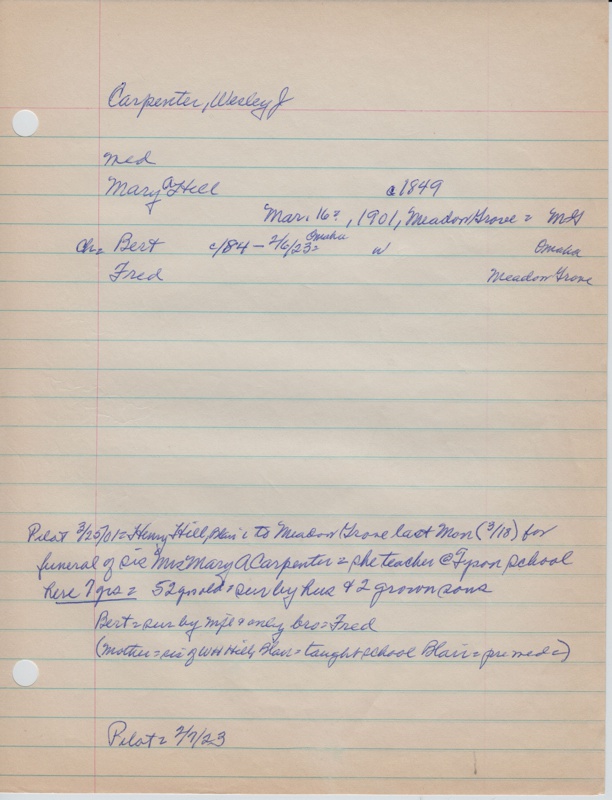 Carpenter, Wesley J
med
Mary A Hill c1849
Mar. 16?, 1901, Meadow Grove = MG
Ch = Bert c/84 - 2/6/23 = Omaha w Omaha
Fred Meadow Grove
Pilot 3/25/01 = Henry Hill, Blair is to Meadow Grove last Mon (3/18) for
funeral of sis Mrs Mary A Carpenter = she teacher @ Tyson School
here 7 yrs = 52 yrs old = sur by hus & 2 grown sons
Bert = sur by wife & only bro = Fred
(Mother = sis of WH Hill, Blair = taught school Blair = pre med =)
Pilot = 2/7/23